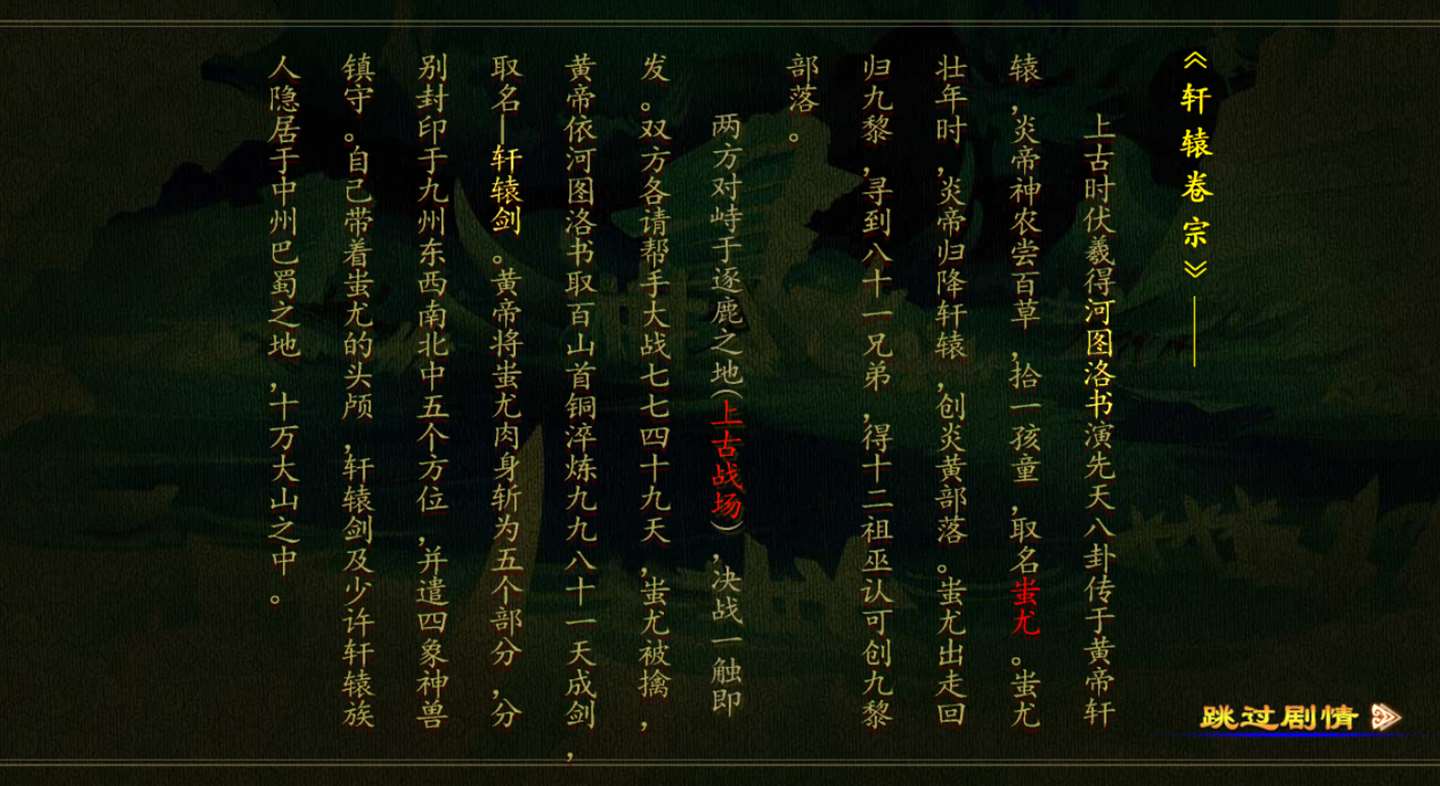 《轩辕卷宗》——
上古时伏羲得河图洛书演先天八卦传于黄帝轩
辕，炎帝神农尝百草，拾一孩童，取名蚩尤。蚩尤
壮年时，炎帝归降轩辕，创炎黄部落。蚩尤出走回
归九黎，寻到八十一兄弟，得十二祖巫认可创九黎
部落。
两方对峙于逐鹿之地(上古战场)，决战一触即
发。双方各请帮手大战七七四十九天，蚩尤被擒，
黄帝依河图洛书取百山首铜淬炼九九八十一天成剑，
取名—轩辕剑。黄帝将蚩尤肉身斩为五个部分，分
别封印于九州东西南北中五个方位，并遣四象神兽
镇守。自己带着蚩尤的头颅，轩辕剑及少许轩辕族
人隐居于中州巴蜀之地，十万大山之中。
跳过剧情